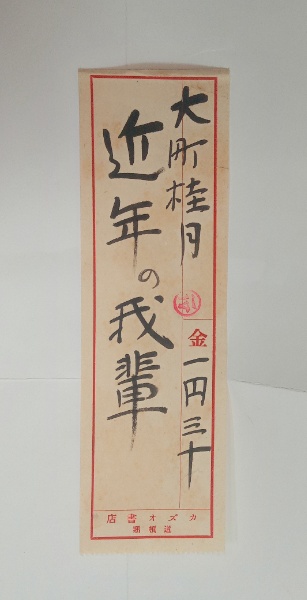 大町桂月
金 一円三十
近年の我輩
カズオ書店
道頓堀